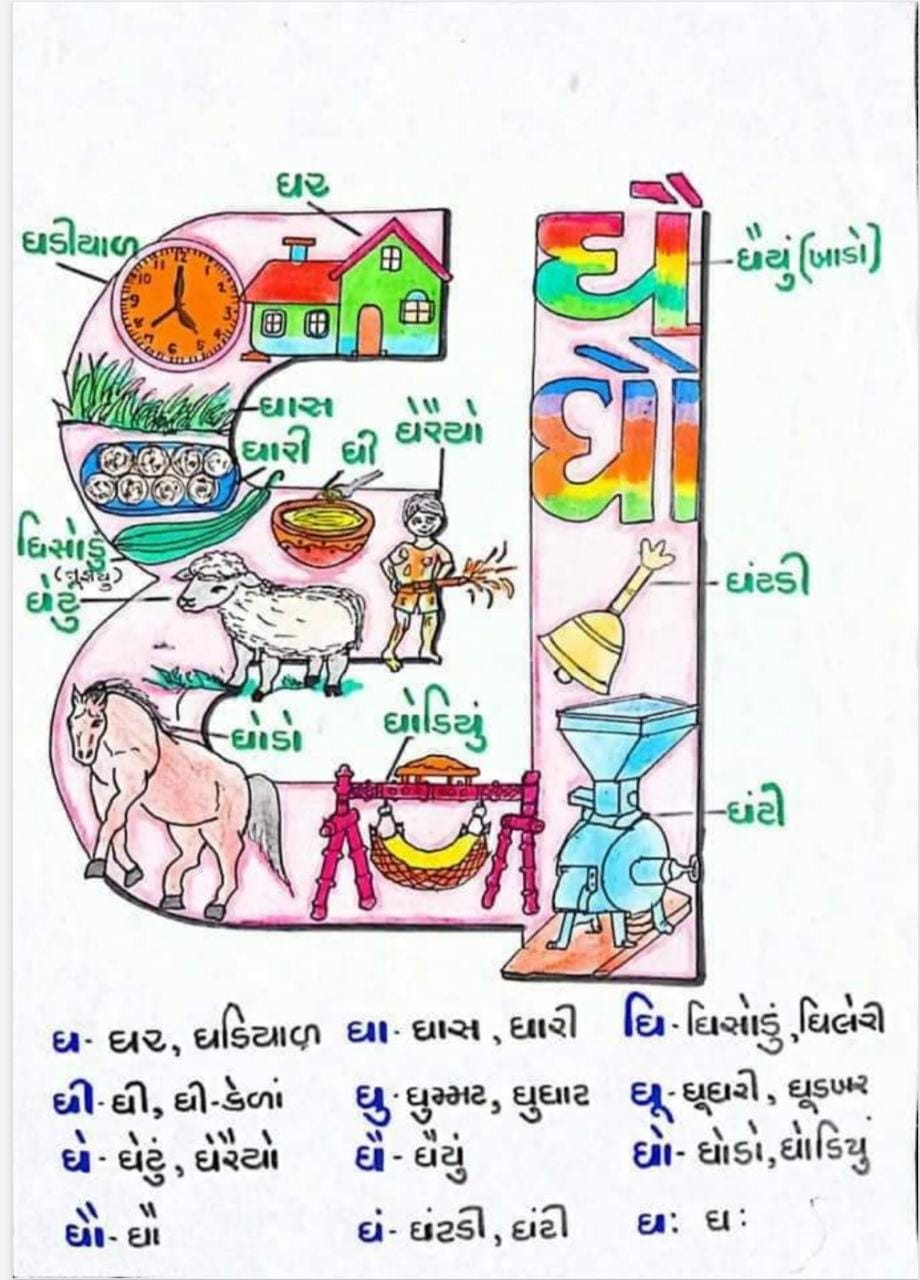 ઘર
ઘડીયાળ
12 1 2 3 4 5 6 7 8 9 10 11
ઘૈ
ઘૈયું (ખાડો)
ઘાસ
ઘારી ઘી ઘેરૈયો
ઘૌ
ઘિસોડું
ઘેટું
ઘંટડી
ઘોડો ઘોડિયું
ઘંટી
ઘ- ઘર, ઘડિયાળ ઘા- ઘાસ, ઘારી ઘિ- ઘિસોડું, ઘિલોરી
ઘી- ઘી, ઘી-કેળાં ઘુ- ઘુમ્મટ, ઘુઘાટ ઘૂ- ઘૂઘરી, ઘૂડખર
ઘે- ઘેટું, ઘેરૈયો ઘૈ- ઘૈયું ઘો- ઘોડો, ઘોડિયું
ઘૌ- ઘૌ ઘં- ઘંટડી, ઘંટી ઘઃ ઘઃ